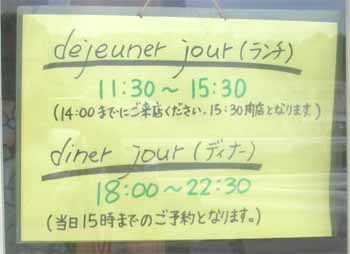 dejeuner jour (ランチ)
11:30～15:30
(14:00までにご来店ください.15:30閉店となります.)
diner jour (ディナー)
18:00～22:30
(当日15時までのご予約となります。)